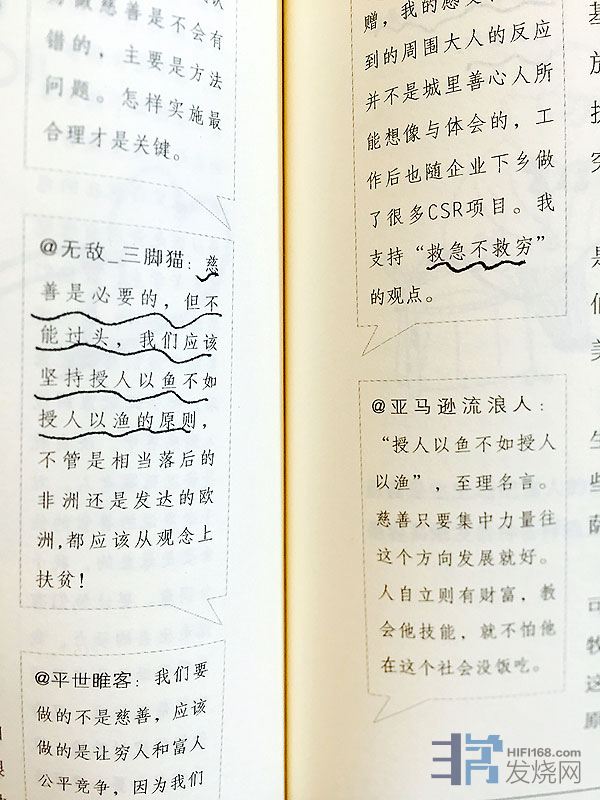 做慈善是不会有
错的，主要是方法
问题。怎样实施最
合理才是关键。
@无敌_三脚猫：慈
善是必要的，但不
能过头，我们应该
坚持授人以鱼不如
授人以渔的原则，
不管是相当落后的
非洲还是发达的欧
洲,都应该从观念上
扶贫！
@平世睢客：我们要
做的不是慈善，应该
做的是让穷人和富人
公平竞争，因为我们
赠，我的感
到的周围大人的反应
并不是城里善心人所
能想像与体会的，工
作后也随企业下乡做
了很多CSR项目。我
支持“救急不救穷”
的观点。
@亚马逊流浪人：
“授人以鱼不如授人
以渔”，至理名言。
慈善只要集中力量往
这个方向发展就好。
人自立则有财富，教
会他技能，就不怕他
在这个社会没饭吃。
是
美
生
些
萨
牧
这
原
HIFI168.com
发烧网